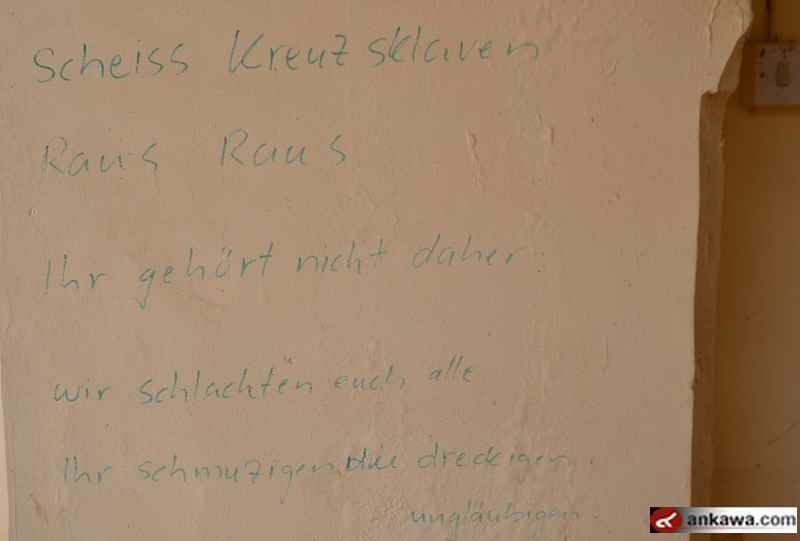 Scheiss Kreuzsklaven
Raus Raus
Ihr gehört nicht daher
wir schlachten euch alle
Ihr schmuzigen dreckigen
ungläubigen.
ankawa.com